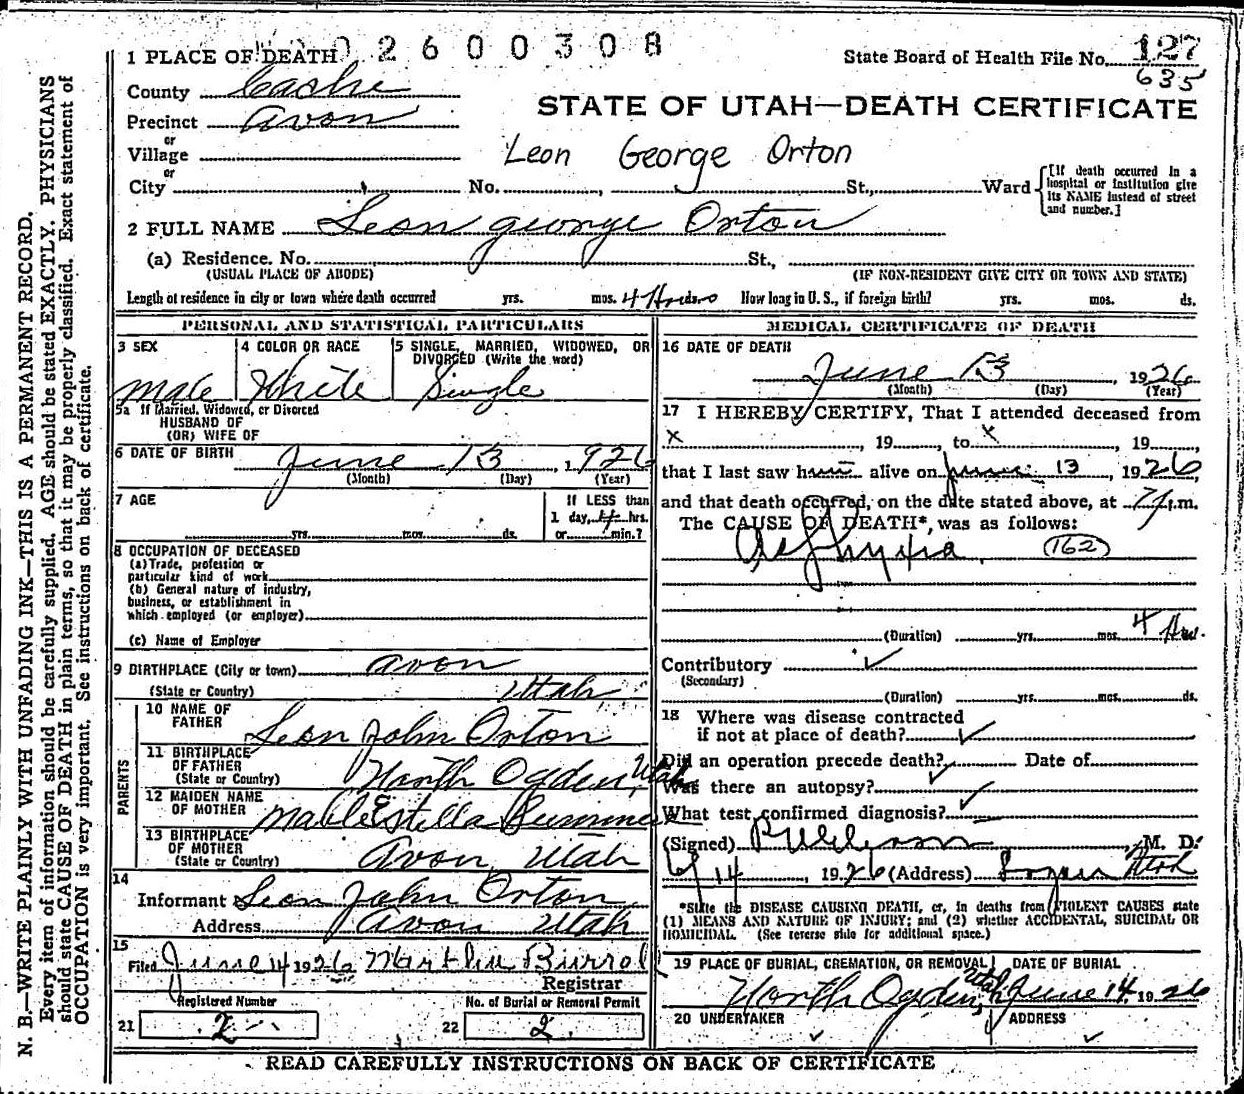 N. B.—WRITE PLAINLY WITH UNFADING INK—THIS IS A PERMANENT RECORD.
Every item of information should be carefully supplied. AGE should be stated EXACTLY. PHYSICIANS
should state CAUSE OF DEATH in plain terms, so that it may be properly classified. Exact statement of
OCCUPATION is very important. See instructions on back of certificate.
1 PLACE OF DEATH 02600308 State Board of Health File No. 127
635
County Cache
STATE OF UTAH—DEATH CERTIFICATE
Precinct Avon
or
Village
Leon George Orton
or
City No. , St., Ward [If death occurred in a hospital or institution give its NAME instead of street and number.]
2 FULL NAME Leon George Orton
(a) Residence. No. St.,
(USUAL PLACE OF ABODE) (IF NON-RESIDENT GIVE CITY OR TOWN AND STATE)
Length of residence in city or town where death occurred yrs. mos. 4 How long in U. S., if foreign birth? yrs. mos. ds.
PERSONAL AND STATISTICAL PARTICULARS
3 SEX 4 COLOR OR RACE 5 SINGLE, MARRIED, WIDOWED, OR
DIVORCED (Write the word)
Male White Single
5a If Married, Widowed, or Divorced
HUSBAND OF
(OR) WIFE OF
6 DATE OF BIRTH June 13, 1926
(Month) (Day) (Year)
7 AGE If LESS than
yrs. mos. ds. 1 day, 4 hrs.
or min.?
8 OCCUPATION OF DECEASED
(a) Trade, profession or
particular kind of work
(b) General nature of industry,
business, or establishment in
which employed (or employer)
(c) Name of Employer
9 BIRTHPLACE (City or town) Avon
(State or Country) Utah
PARENTS
10 NAME OF
FATHER Leon John Orton
11 BIRTHPLACE
OF FATHER
(State or Country) North Ogden, Utah
12 MAIDEN NAME
OF MOTHER Mable Estella
13 BIRTHPLACE
OF MOTHER
(State or Country) Avon, Utah
14
Informant Leon John Orton
Address Avon Utah
15
Filed June 14 1926
Registrar
Registered Number No. of Burial or Removal Permit
21 2 22 2
MEDICAL CERTIFICATE OF DEATH
16 DATE OF DEATH
June 13, 1926
(Month) (Day) (Year)
17 I HEREBY CERTIFY, That I attended deceased from
x , 19 , to x , 19 ,
that I last saw him alive on June 13 1926,
and that death occurred, on the date stated above, at 7 .m.
The CAUSE OF DEATH*, was as follows:
Asphyxia (162)
(Duration) yrs. mos. 4 Hrs.
Contributory
(Secondary)
(Duration) yrs. mos. ds.
18 Where was disease contracted
if not at place of death?
Did an operation precede death? Date of
Was there an autopsy?
What test confirmed diagnosis?
(Signed) , M. D.
6/14, 1926 (Address) Logan Utah
*State the DISEASE CAUSING DEATH, or, in deaths from VIOLENT CAUSES state
(1) MEANS AND NATURE OF INJURY; and (2) whether ACCIDENTAL, SUICIDAL OR
HOMICIDAL. (See reverse side for additional space.)
19 PLACE OF BURIAL, CREMATION, OR REMOVAL DATE OF BURIAL
North Ogden, Utah June 14, 1926
20 UNDERTAKER ADDRESS
READ CAREFULLY INSTRUCTIONS ON BACK OF CERTIFICATE